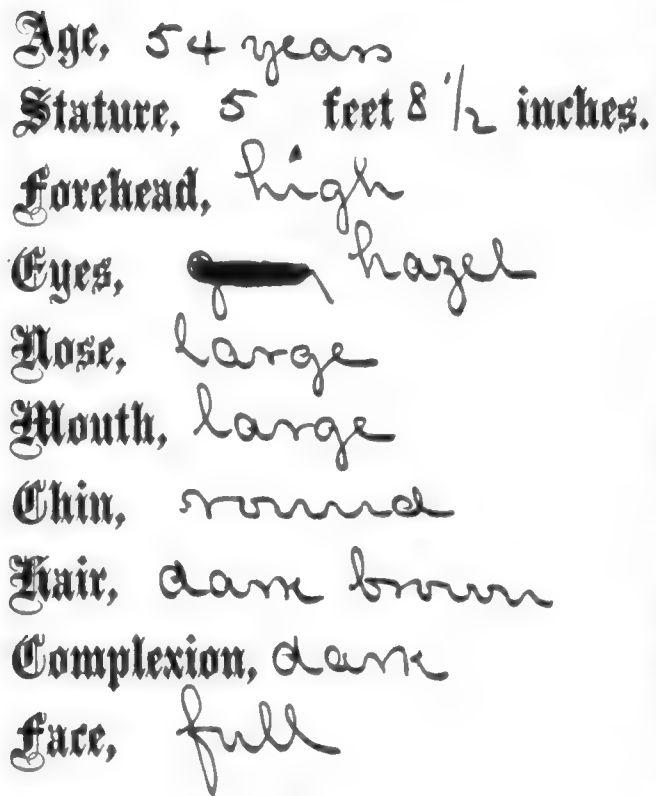 Age, 54 years
Stature, 5 feet 8 1/2 inches.
Forehead, high
Eyes, hazel
Nose, large
Mouth, large
Chin, round
Hair, dark brown
Complexion, dark
Face, full